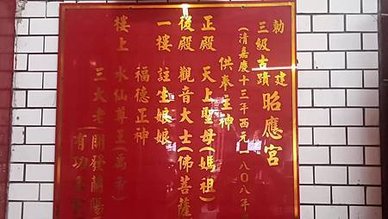 勅建 昭應宮
三級古蹟
(清嘉慶十三年西元一八〇八年
供奉主神
正殿 天上聖母(媽祖)
後殿 觀音大士(佛菩薩
一樓 註生娘娘
福德正神
樓上 水仙尊王(禹帝)
三大老(開發蘭陽
有功